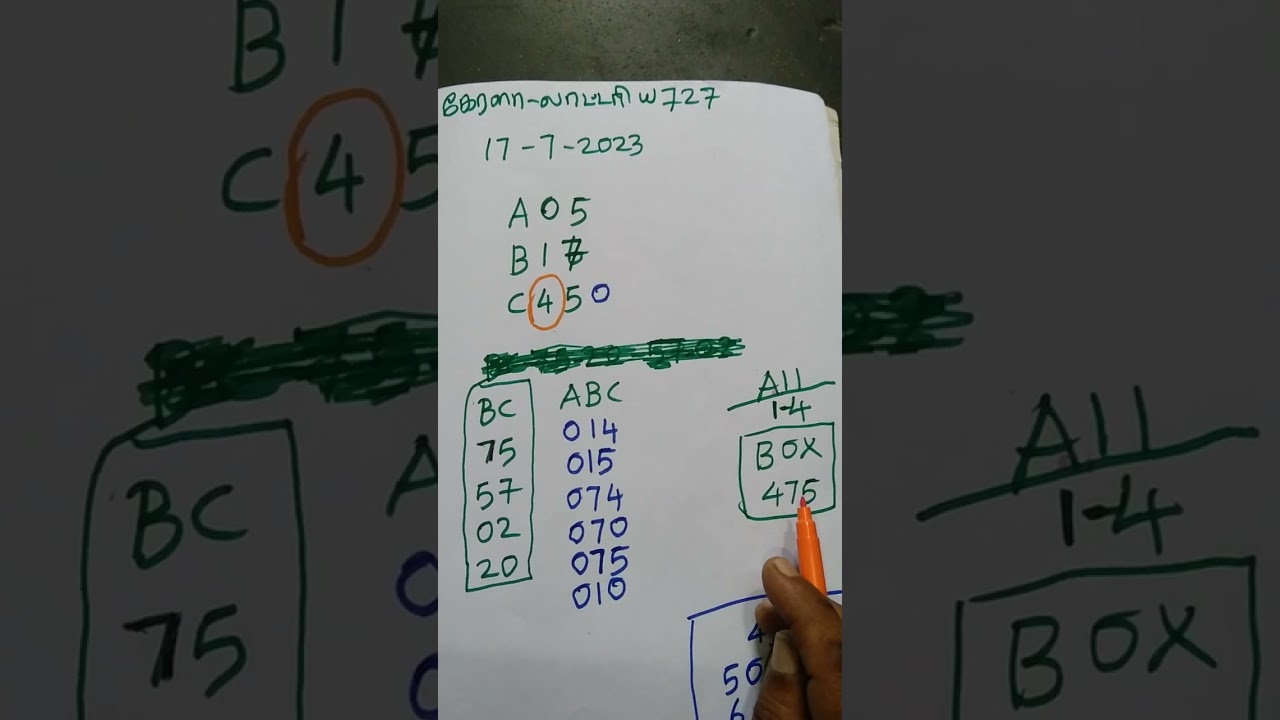 கேரளா-லாட்டரி W727
17-7-2023
A 0 5
B 1 7
C 4 5 0
BC
75
57
02
20
ABC
014
015
074
070
075
010
All
1-4
BOX
475
4
50
6